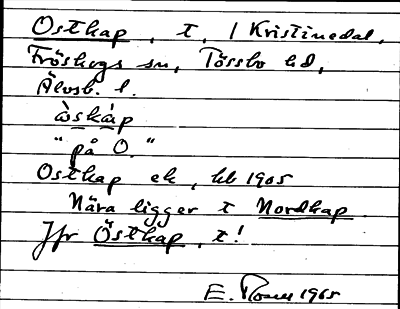 Ostkap, t, / Kristinedal,
Fröskogs sn, Tössbo hd,
Älvsb. l.
òskáp
"på O."
Ostkap ek, hb 1905
Nära ligger t Nordkap.
Jfr Östkap, t!
E. Rosell 1965